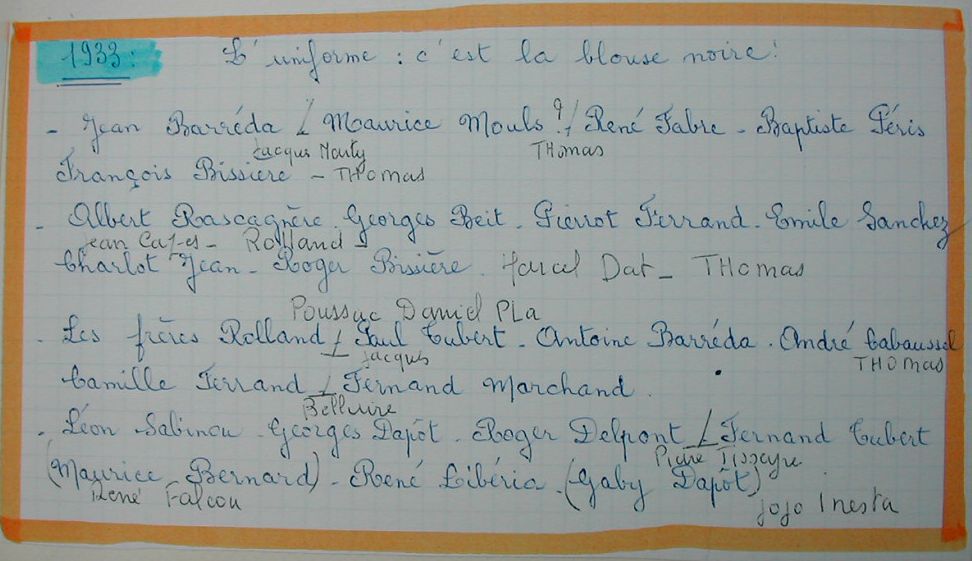 1933: L'uniforme : c'est la blouse noire!
- Jean Barréda / Maurice Mouls ?/ René Fabre - Baptiste Péris
Jacques Marty THOMAS
François Bissière - THOMAS
- Albert Rascagnère. Georges Beit. Pierrot Ferrand. Emile Sanchez
Jean Cafes - Rolland -
Charlot Jean - Roger Bissière. Marcel Dat - THOMAS
Poussac Daniel PLa
- Les frères Rolland / Paul Cubert - Antoine Barréda. André Cabaussel
Jacques THOMAS
Camille Ferrand / Fernand Marchand.
- Léon Sabinou. Georges Dapôt. Roger Delpont / Fernand Cubert
Pierre Tisseyre
(Maurice Bernard) - René Libéria. (Gaby Dapôt)
René Falcou Jojo Inesta